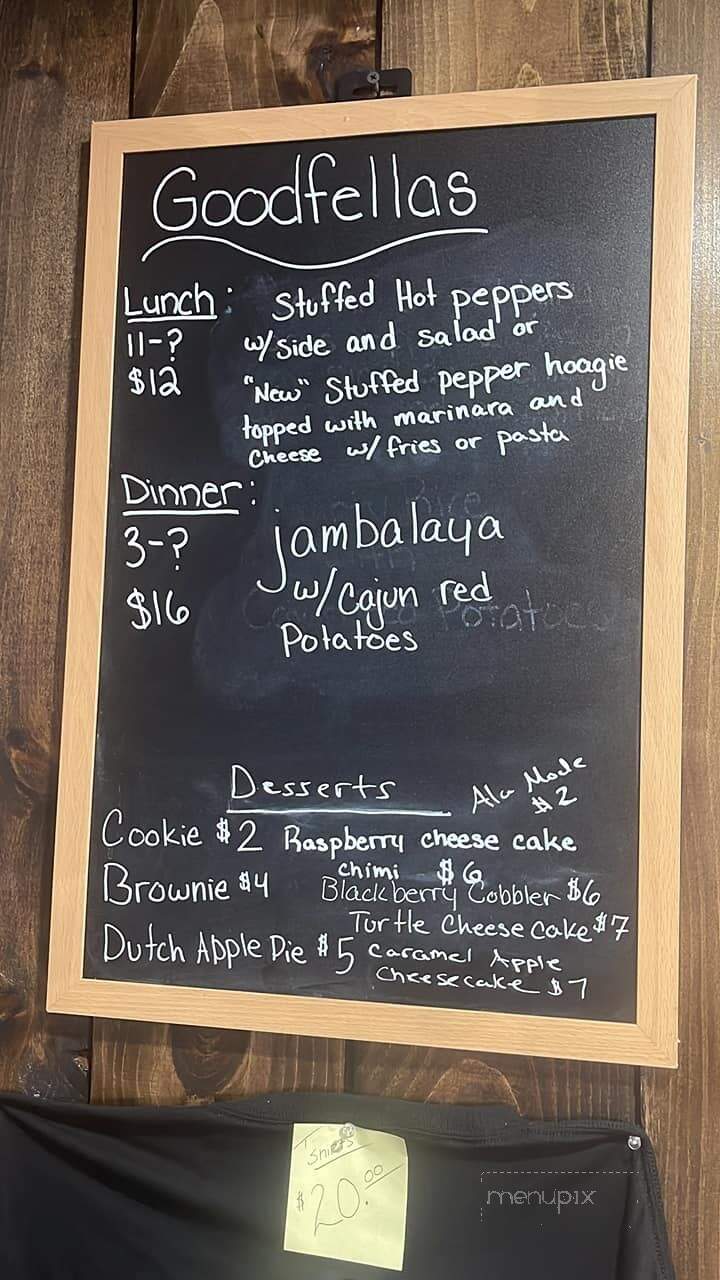 Goodfellas
Lunch: Stuffed Hot peppers
11-? w/side and salad or
$12 "New" Stuffed pepper hoagie
topped with marinara and
Cheese w/ fries or pasta
Dinner:
3-? jambalaya
$16 w/Cajun red
Potatoes
Potatoes
Desserts Ala Mode
$2
Cookie $2 Raspberry cheese cake
chimi $6
Brownie $4 Blackberry Cobbler $6
Turtle Cheese cake $7
Dutch Apple Pie $5 Caramel Apple
Cheesecake $7
T
Shirts
$20.00
menupix